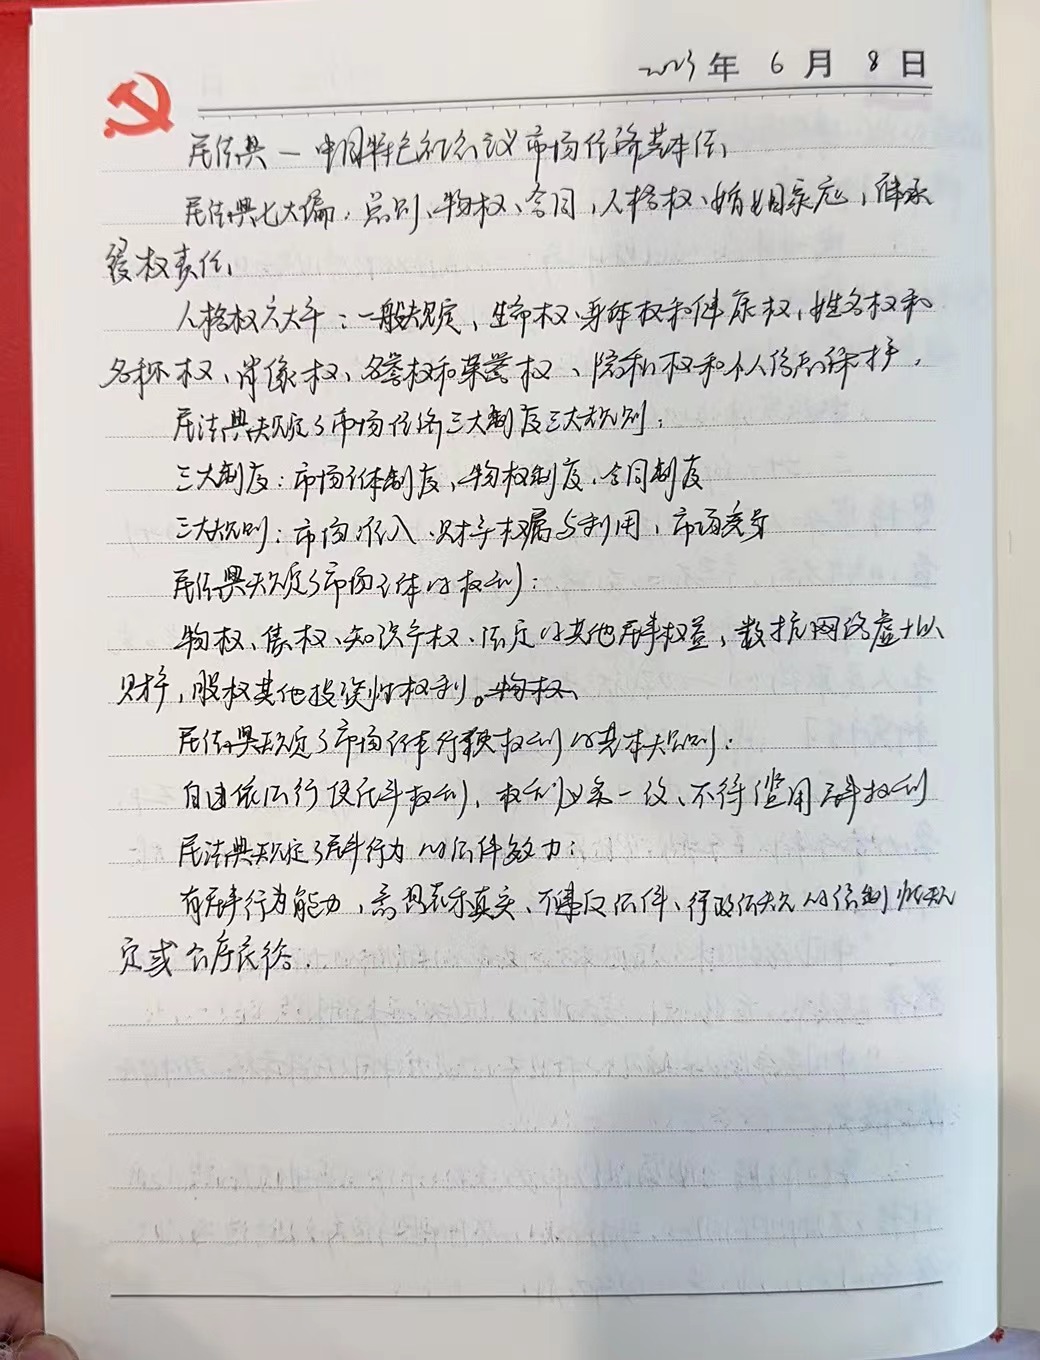 2023年6月8日
民法典—中国特色社会主义市场经济基本法、
民法典七大编：总则、物权、合同、人格权、婚姻家庭、继承
侵权责任、
人格权六大章：一般规定、生命权、身体权和健康权、姓名权和
名称权、肖像权、名誉权和荣誉权、隐私权和个人信息保护。
民法典规定了市场经济三大制度三大规则：
三大制度：市场主体制度、物权制度、合同制度
三大规则：市场准入、财产权属与利用、市场交易
民法典规定了市场主体的权利：
物权、债权、知识产权、法定的其他民事权益、数据网络虚拟
财产、股权其他投资性权利。物权、
民法典规定了市场主体行使权利的基本规则：
自由依法行使民事权利、权利义务一致、不得滥用民事权利
民法典规定了民事行为的条件效力：
有民事行为能力、意思表示真实、不违反法律、行政法规的强制性规
定或公序良俗